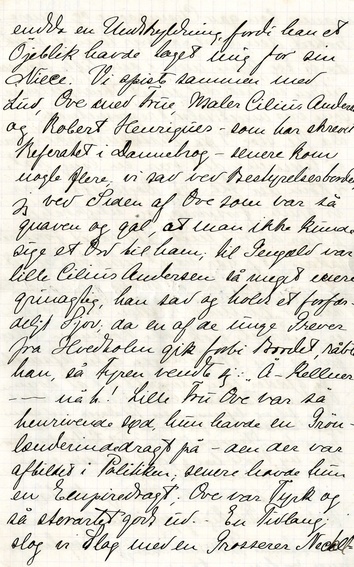 endda en Undskyldning, fordi han et
Øjeblik havde taget mig for sin
Niece. Vi spiste sammen med
Lud, Ove med Frue, Maler Cilius Anders
og Robert Henriques - som har skrevet
Referatet i Dannebrog - senere kom
nogle flere, vi sad ved Bestyrelsesbordet
jeg ved Siden af Ove som var så
gnaven og gal, at man ikke kunde
sige et Ord til ham, til Gengæld var
lille Cilius Andersen så meget mere
grinagtig, han sad og holdt et forfær-
deligt Sjov, da en af de unge Grever
fra Hvedholm gik forbi Bordet, råbte
han, så Fyren vendte sig: "A - Kellner
— nåh! Lille Fru Ove var så
henrivende sød, hun havde en Grøn-
lænderindedragt på - den der var
afbildet i Politiken, senere havde hun
en Empiredragt. Ove var Tyrk og
så storartet godt ud. - En Tidlang
slog vi Slag med en Grosserer